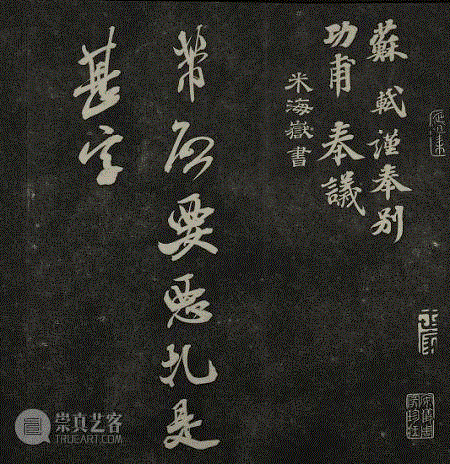 蘇軾謹奉別
功甫奉議
米海嶽書
芾所要惡札是
甚字
崇真艺客
TRUEART.COM